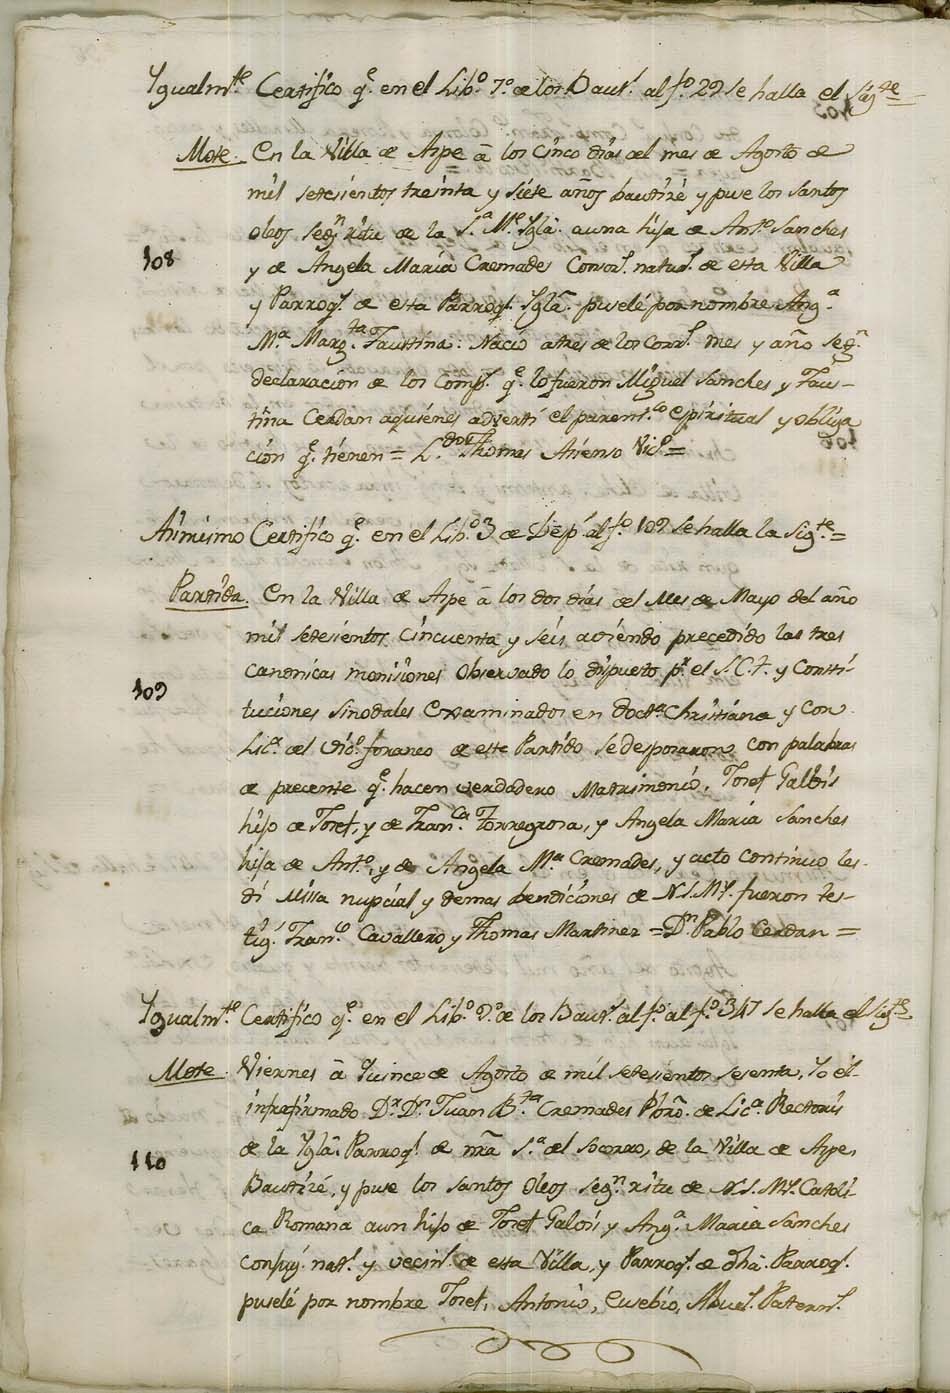 Ygualm.te Certifico q.e en el Lib.o 7.o de los Baut.s al f.o 29 se halla el Sig.te
Mote. En la Villa de Aspe â los cinco dias del mes de Agosto de
mil setesientos treinta y siete años bautizè y puse los santos
oleos segn ritu de la S.a M.e Ygla. a una hija de Ant.o Sanches
108
y de Angela Maria Cremades Consor.s natur.s de esta Villa
y Parroq.s de esta Parroq.l Ygla. puselé por nombre Ang.a
M.a Marg.ta Faustina: Nacio a tres de los Corr.s mes y año seg.n
declaracion de los Comp.s q.e lo fueron Miguel Sanches y Faus-
tina Cerdan a quienes advertì el parent.co espiritual y obliga
ción q.e tienen = L.do Thomas Asenso Vic.o =
Asimismo Certifico q.e en el Lib.o 3 de Desp.s al f.o 109 se halla la Sig.te =
Partida. En la Villa de Aspe â los dos dias del Mes de Mayo del año
mil setesientos Cincuenta y seis aviendo precedido las tres
canonicas monisiones observado lo dispuesto p.r el S.C.T. y Consti-
109
tuciones sinodales Examinados en Doct.a Christiana y con
Lic.a del Vic.o foraneo de este Partido se desposaron con palabras
de precente q.e hacen verdadero Matrimonio, Josef Galbis
hijo de Josef, y de Fran.ca Torregrosa, y Angela Maria Sanches
hija de Ant.o, y de Angela M.a Cremades, y acto continuo les
dì Missa nupcial y demas bendiciones de N.S.M.Y. fueron tes-
tig.s Fran.co Cavallero y Thomas Martinez = D.n Pablo Cerdan =
Ygualm.te Certifico q.e en el Lib.o 9.o de los Baut.s al f.o al f.o 347 se halla el Sig.te
Mote. Viernes â Quince de Agosto de mil setesientos sesenta, Yo el
infrafirmado D.r D.n Juan B.ta Cremades Pbro. de Lic.a Rectoris
de la Ygla. Parroq.l de nra S.a del Socorro, de la Villa de Aspe,
110
Bautizé, y puse los santos oleos seg.n ritu de N.S.M.Y. Catoli-
ca Romana a un hijo de Josef Galbis y Ang.a Maria Sanches
conjug.s nat.s y vecin.s de esta Villa, y Parroq.s de dha. Parroq.l
puselé por nombre Josef, Antonio, Eusebio, Abuel.s Patern.s